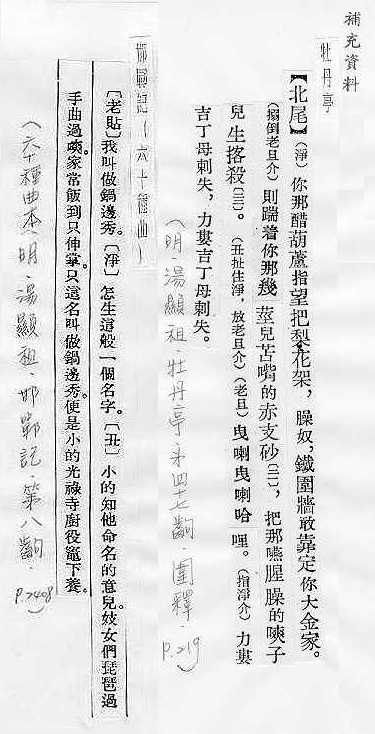 補充資料
牡丹亭
【北尾】(淨)你那醋葫蘆指望把梨花架，臊奴，鐵圍牆敢靠定你大金家。
(搦倒老旦介)則踹着你那幾莖兒苦嘴的赤支砂〔二〕，把那嚥腥臊的嗓子
兒生揢殺〔三〕。(丑扯住淨，放老旦介)(老旦)曳喇曳喇哈哩。(指淨介)力婁
吉丁母剌失，力婁吉丁母剌失。
(明·湯顯祖·牡丹亭·第四十七齣·圍釋· P.219)
邯鄲記(六十種曲)
〔老貼〕我叫做鍋邊秀。〔淨〕怎生這般一個名字。〔丑〕小的知他命名的意兒妓女們琵琶過
手曲過嗓家常飯到只伸掌只這名叫做鍋邊秀便是小的光祿寺廚役竈下養。
(六十種曲本·明·湯顯祖·邯鄲記·第八齣· P.2408)